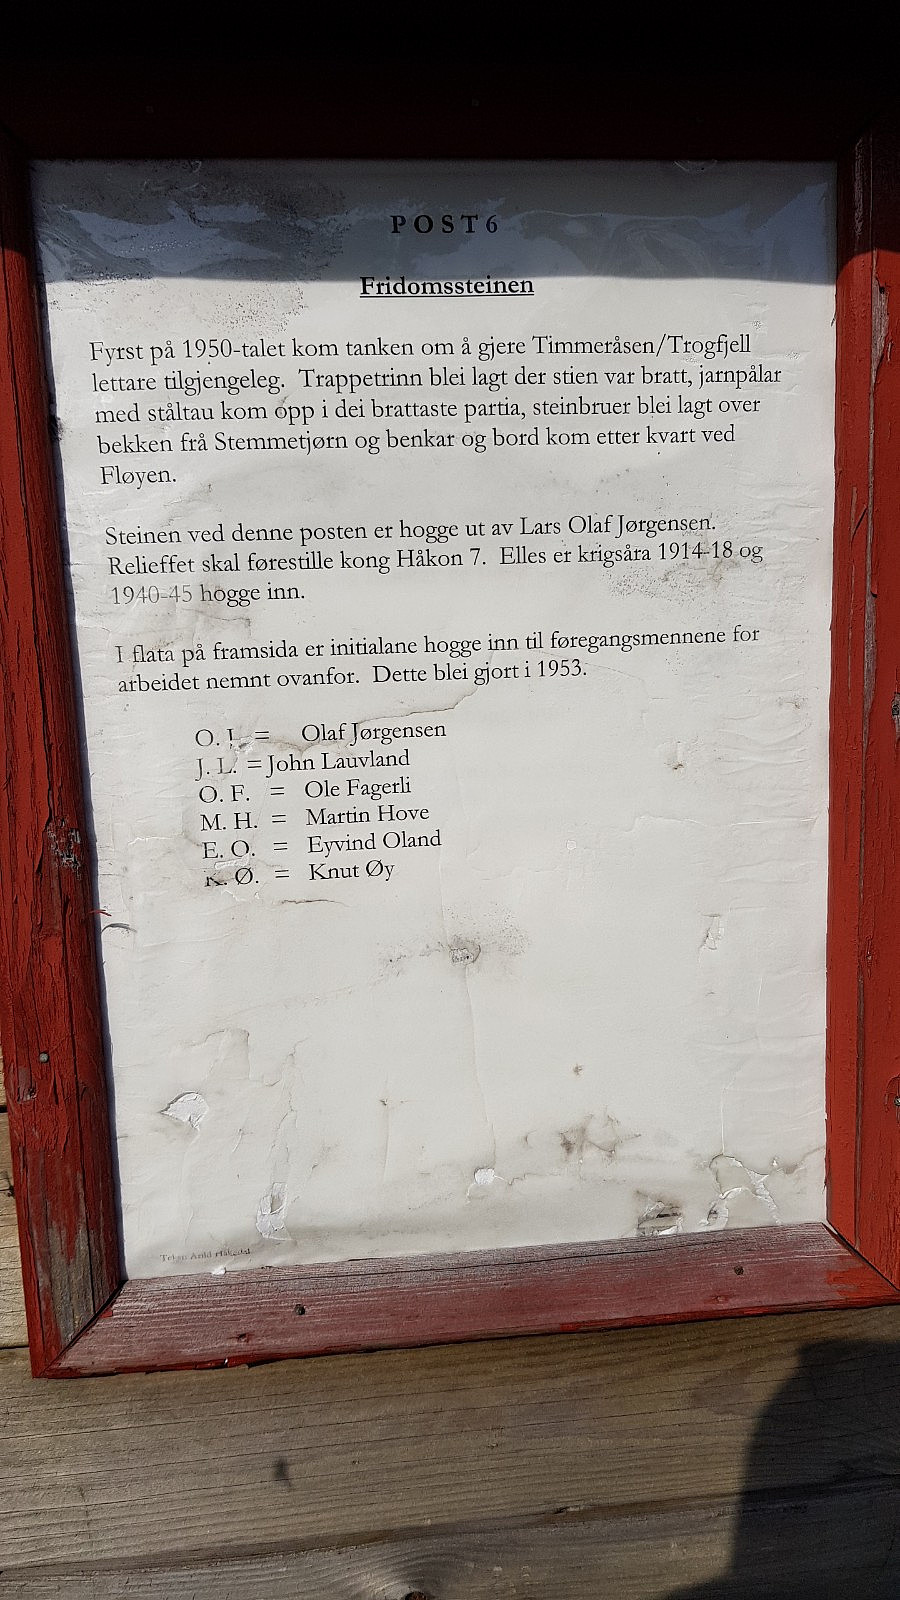 POST 6
Fridomssteinen
Fyrst på 1950-talet kom tanken om å gjere Timmeråsen/Trogfjell
lettare tilgjengeleg. Trappetrinn blei lagt der stien var bratt, jarnpålar
med ståltau kom opp i dei brattaste partia, steinbruer blei lagt over
bekken frå Stemmetjørn og benkar og bord kom etter kvart ved
Fløyen.
Steinen ved denne posten er hogge ut av Lars Olaf Jørgensen.
Relieffet skal førestille kong Håkon 7. Elles er krigsåra 1914-18 og
1940-45 hogge inn.
I flata på framsida er initialane hogge inn til føregangsmennene for
arbeidet nemnt ovanfor. Dette blei gjort i 1953.
O. J. = Olaf Jørgensen
J. L. = John Lauvland
O. F. = Ole Fagerli
M. H. = Martin Hove
E. O. = Eyvind Oland
K. Ø. = Knut Øy
Arild